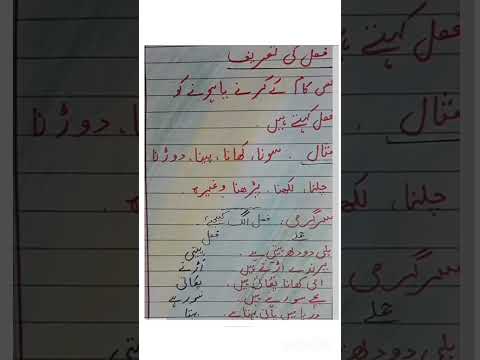 فعل کی تعریف
کسی کام کے کرنے یا ہونے کو
فعل کہتے ہیں۔
مثال۔ سونا، کھانا، پینا، دوڑنا
چلنا، لکھنا، پڑھنا وغیرہ۔
سرگرمی، فعل الگ کیجئے۔
جملے فعل
بلی دودھ پیتی ہے۔ پیتی
پرندے اڑتے ہیں اڑتے
امی کھانا پکاتی ہیں۔ پکاتی
بچے سو رہے ہیں۔ سو رہے
دریا میں پانی بہتا ہے۔ بہتا
سرگرمی
جملے